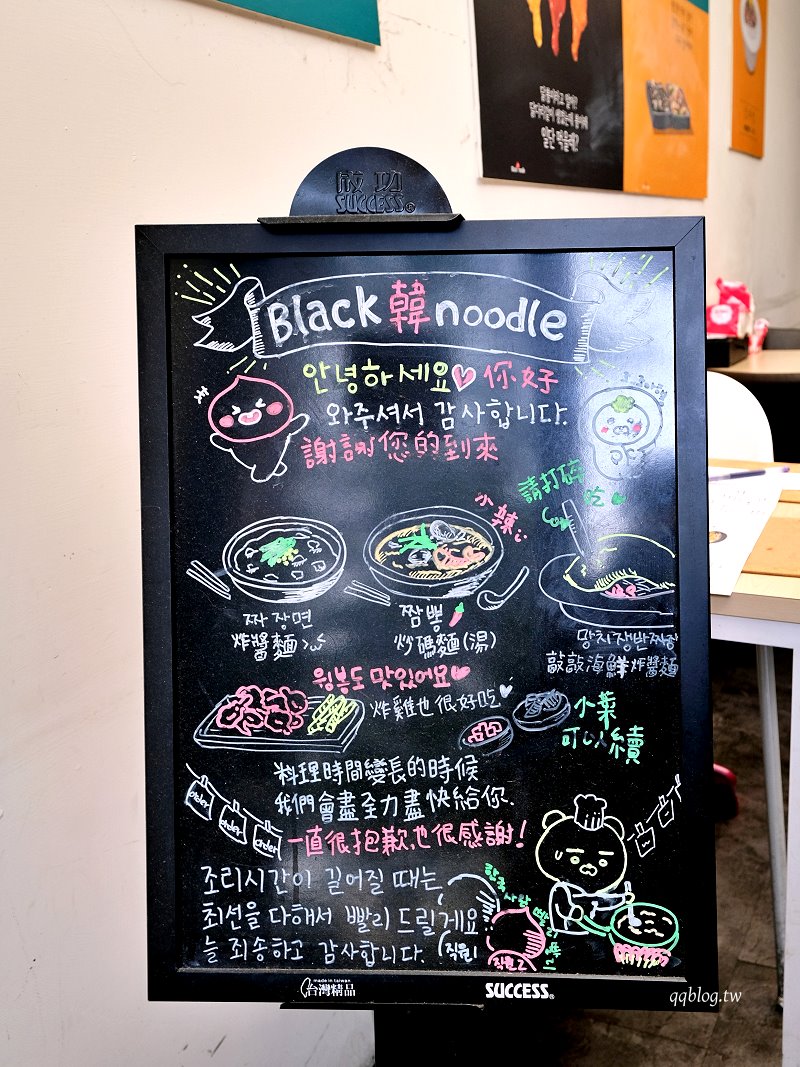 달콤하고 할까?
일단 먹을래?
成功
SUCCESS®
Black 韓 noodle
안녕하세요♡你好
와주셔서 감사합니다.
謝謝您的到來
請打碎
吃
小辣
짜장면
炸醬麵
짬뽕
炒碼麵(湯)
망치쟁반짜장
敲敲海鮮炸醬麵
윙봉도 맛있어요
炸雞也很好吃
小菜
可以續
料理時間變長的時候
我們會盡全力盡快給你.
一直很抱歉,也很感謝!
order
order
order
조리시간이 길어질 때는
최선을 다해서 빨리 드릴게요
늘 죄송하고 감사합니다.
직원1
직원2
한국사람
made in taiwan
台灣精品
SUCCESS®
qqblog.tw